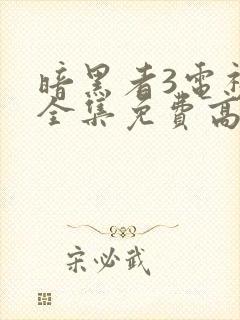 暗黑者3电视
全集免费高
宋必武